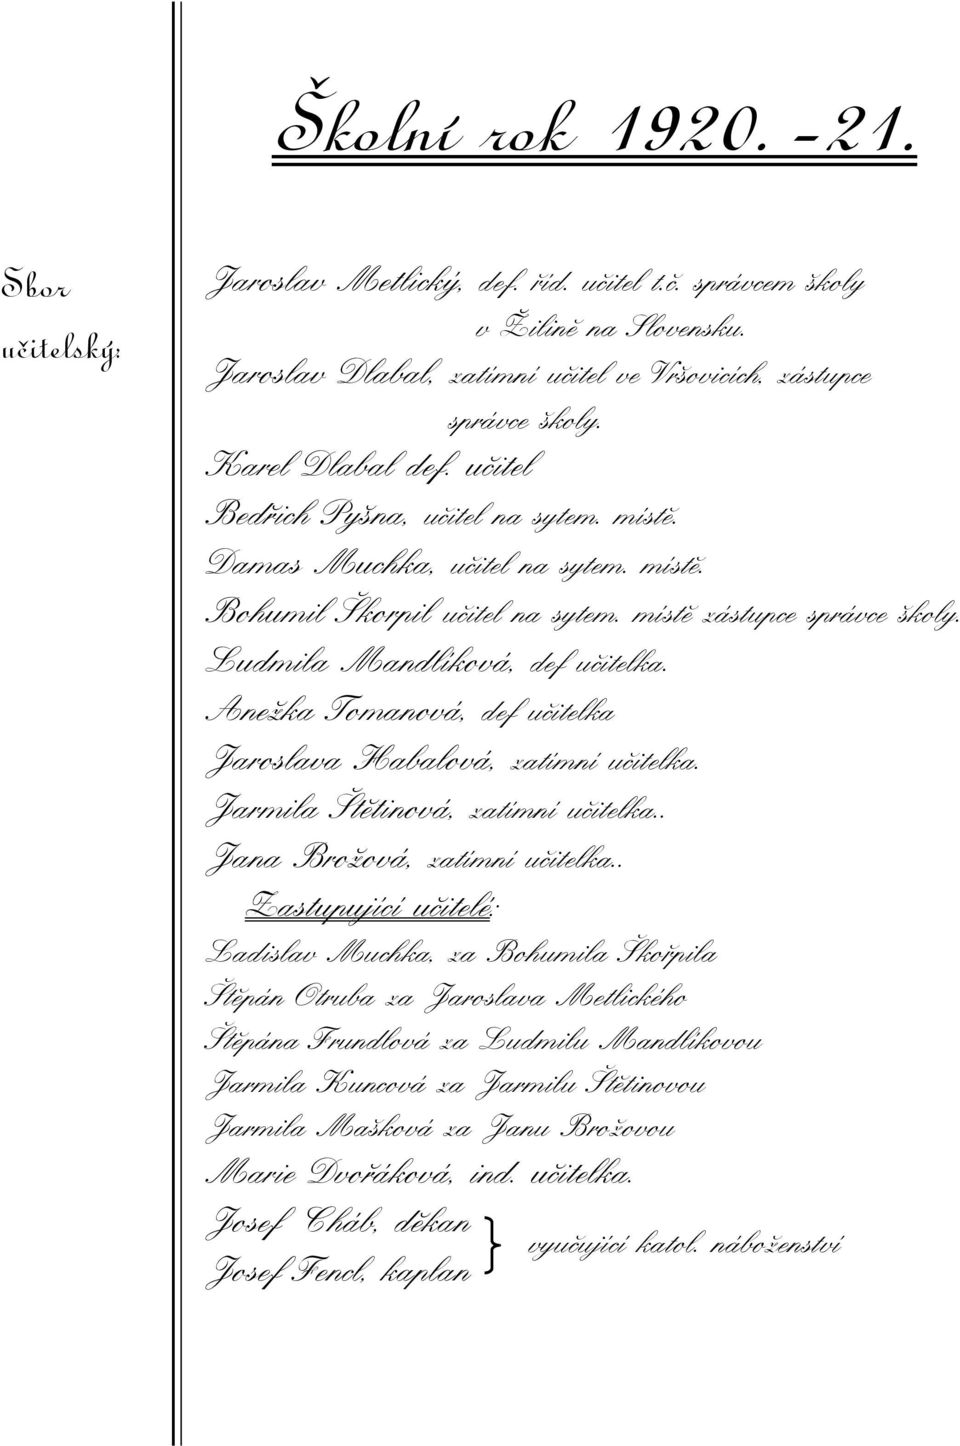 Školní rok 1920. -21.
Sbor
učitelský:
Jaroslav Metlický, def. říd. učitel t.č. správcem školy
v Žilině na Slovensku.
Jaroslav Dlabal, zatímní učitel ve Vršovicích, zástupce
správce školy.
Karel Dlabal def. učitel
Bedřich Pyšna, učitel na sytem. místě.
Damas Muchka, učitel na sytem. místě.
Bohumil Škorpil učitel na sytem. místě zástupce správce školy.
Ludmila Mandlíková, def učitelka.
Anežka Tomanová, def učitelka
Jaroslava Habalová, zatímní učitelka.
Jarmila Štětinová, zatímní učitelka..
Jana Brožová, zatímní učitelka..
Zastupující učitelé:
Ladislav Muchka, za Bohumila Škořpila
Štěpán Otruba za Jaroslava Metlického
Štěpána Frundlová za Ludmilu Mandlíkovou
Jarmila Kuncová za Jarmilu Štětinovou
Jarmila Mašková za Janu Brožovou
Marie Dvořáková, ind. učitelka.
Josef Cháb, děkan
Josef Fencl, kaplan
} vyučující katol. náboženství